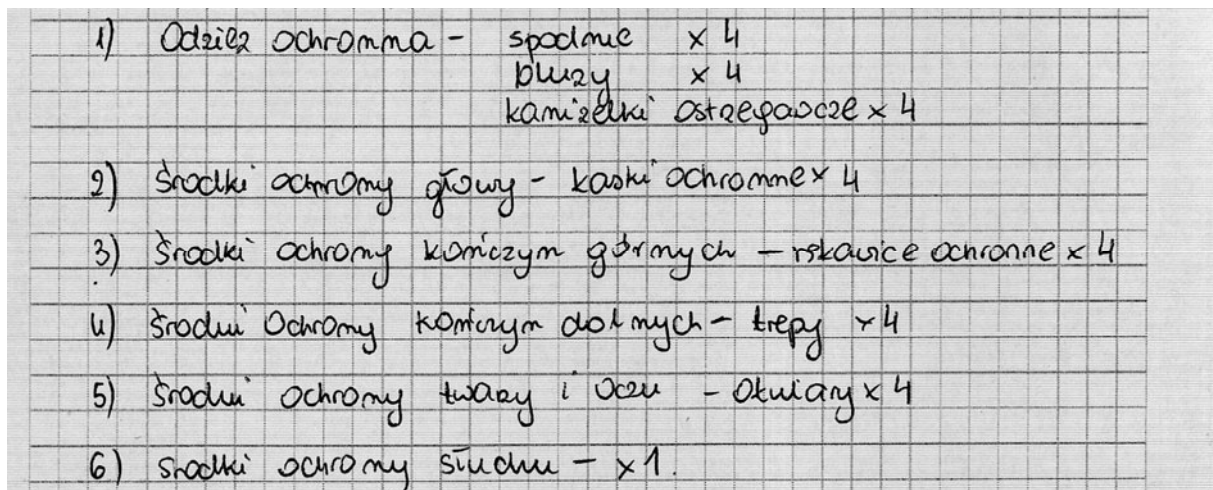 1) Odzież ochronna - spodnie x 4
bluzy x 4
kamizelki ostrzegawcze x 4
2) Środki ochrony głowy - kaski ochronne x 4
3) Środki ochrony kończyn górnych - rękawice ochronne x 4
4) Środki ochrony kończyn dolnych - trepy x 4
5) Środki ochrony twarzy i oczu - okulary x 4
6) środki ochrony słuchu - x 1.